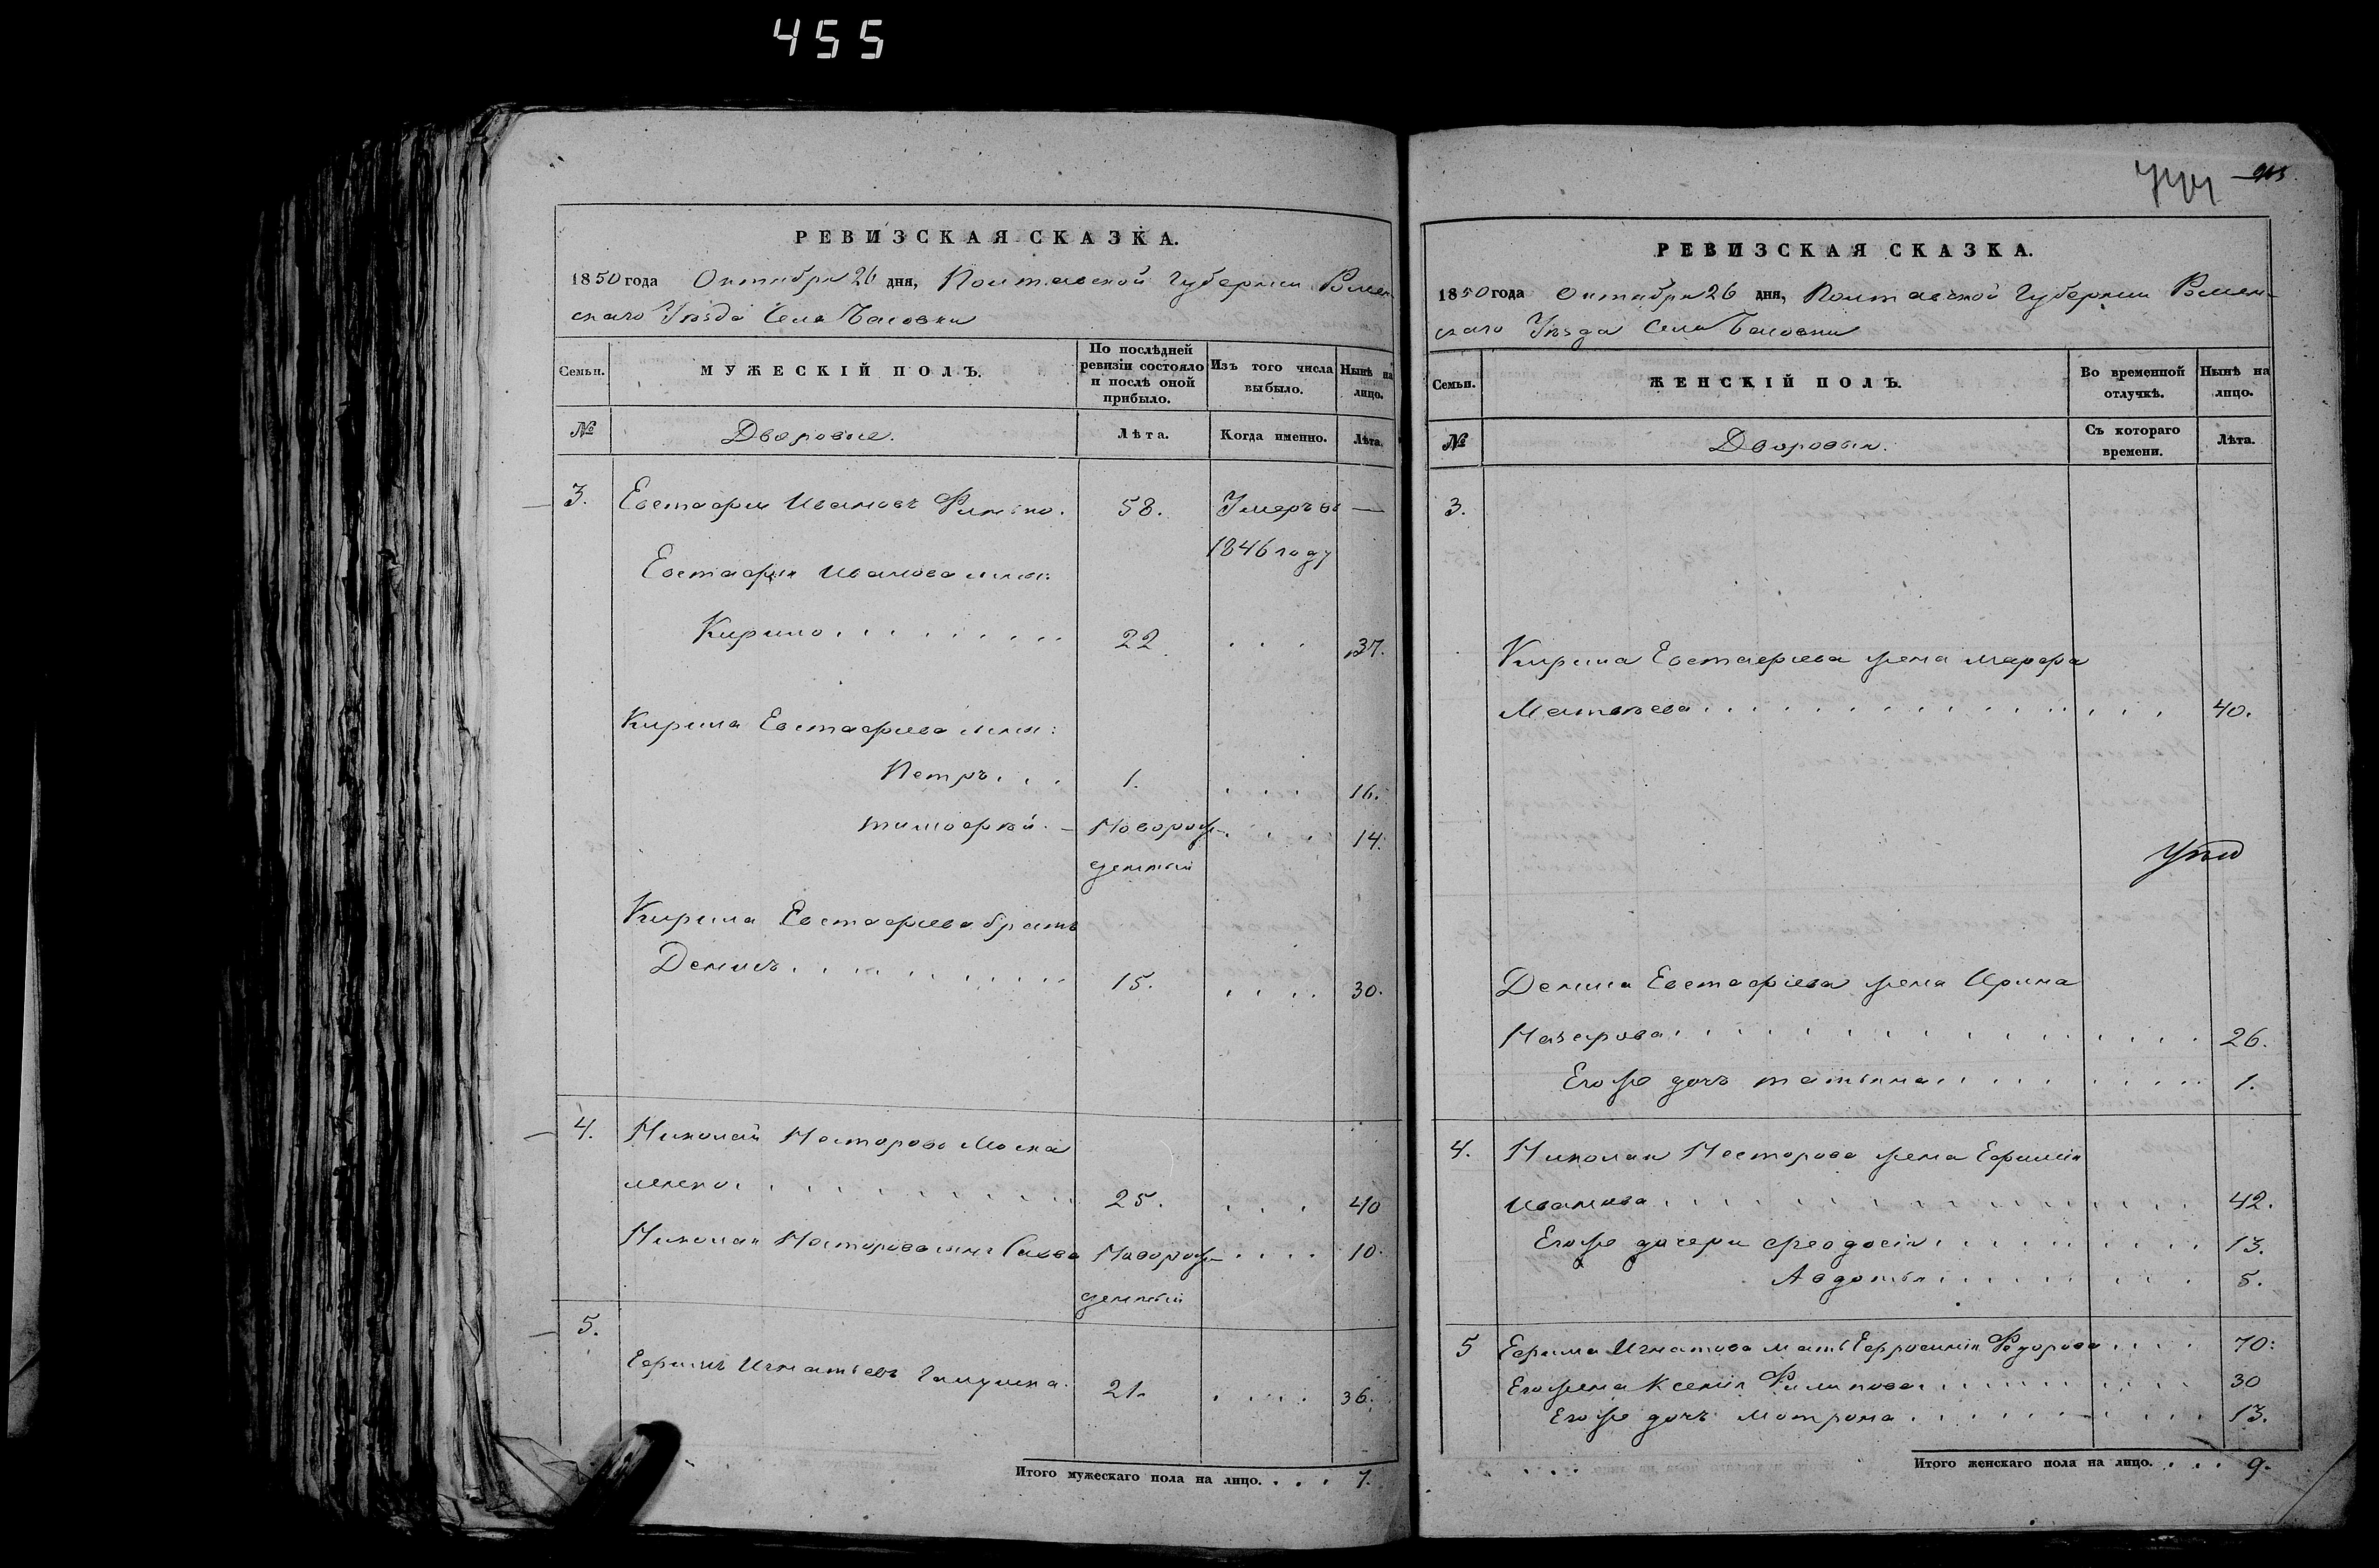 455
РЕВИЗСКАЯ СКАЗКА.
1850 года Октября 26 дня, Полтавской Губернии Ромен-
скаго Уѣзда Села Басовки
Семьи.
МУЖЕСКІЙ ПОЛЪ.
По послѣдней ревизіи состояло и послѣ оной прибыло.
Изъ того числа выбыло.
Нынѣ на лицо.
№
Дворовые.
Лѣта.
Когда именно.
Лѣта.
3. Евстафий Ивановъ 58. Умеръ въ —
1846 году
Евстафия Иванова сынъ:
Кирило . . . . . . . . . 22 . . . 37.
Кирила Евстафиева сыны:
Петръ . . . 1. . . . . 16.
Тимофѣй. —Новорож- . . . 14.
денный
Кирила Евстафиева братъ
Денисъ . . . . . . . . . . 15. . . . . 30.
4. Николай Несторовъ Моска
ленко . . . . . . . . . . . 25. . . . 40
Николая Несторова сынъ Сава Новорож- . . . . 10.
денный
5.
Ефимъ Игнатьевъ 21. . . . . 36.
Итого мужескаго пола на лицо. . . . 7.
РЕВИЗСКАЯ СКАЗКА.
1850 года Октября 26 дня, Полтавской Губернии Ромен-
скаго Уѣзда Села Басовки
Семьи.
ЖЕНСКІЙ ПОЛЪ.
Во временной отлучкѣ.
Нынѣ на лицо.
№
Дворовыя.
Съ котораго времени.
Лѣта.
3.
Кирила Евстафиева жена Марфа
Матвѣева . . . . . . . . . . . . . . 40.
Дениса Евстафиева жена Ирина
Назарова . . . . . . . . . . . . . . . 26.
Его же дочь Татьяна . . . . . . . . . 1.
4. Николая Несторова жена Ефимія
Иванова . . . . . . . . . . . . . . . 42.
Его же дочери Феодосія . . . . . . . . 13.
Авдотья . . . . . . . . 5.
5 Ефима Игнатова мать Ефросинія Федорова . . . . 70.
Его жена Ксенія Филипова . . . . . . . . . 30
Его же дочь Мотрона . . . . . . . . . . 13.
Итого женскаго пола на лицо. . . . 9.